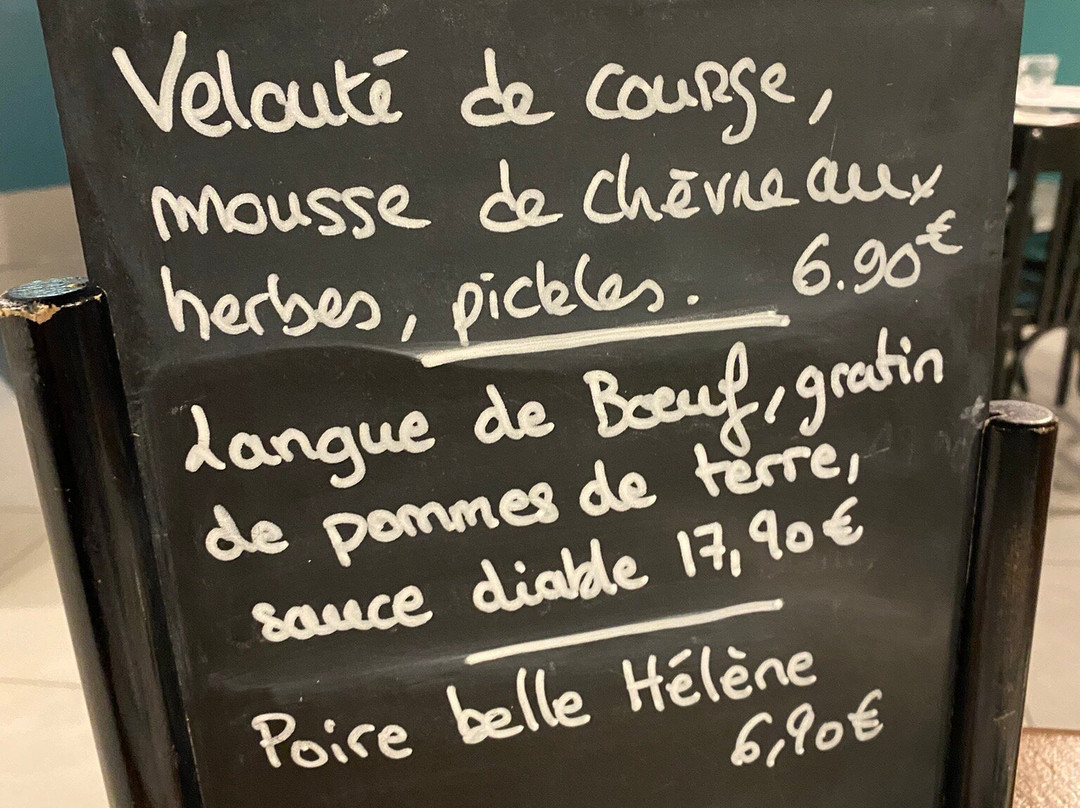 Velouté de courge,
mousse de chèvre aux
herbes, pickles. 6.90€
Langue de Bœuf, gratin
de pommes de terre,
sauce diable 17,90€
Poire belle Hélène
6,90€